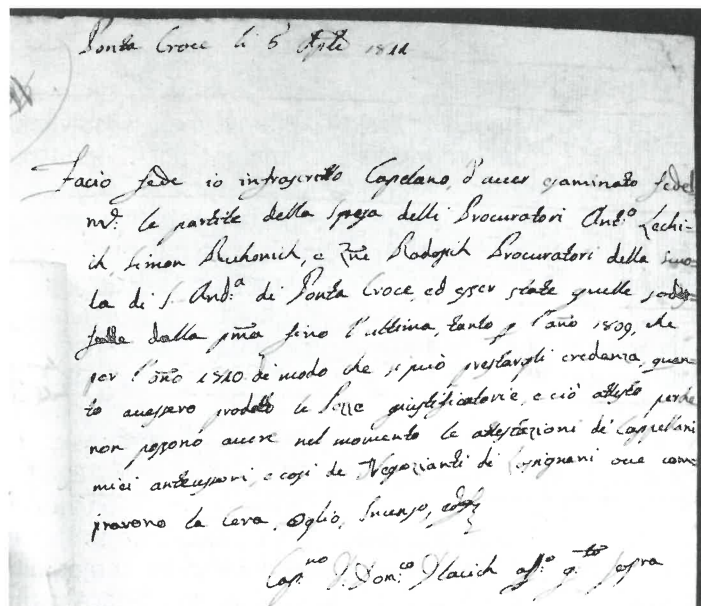 Ponta Croce li 5 Aple 1811
Facio fede io infrascritto Capelano, d'aver esaminato fedel
mte: le partite della spesa delli Procuratori Ant:o Lechi-
ch, Simon Ruhonich, e Zne Radosich Procuratori della scuo-
la di S. And:a di Ponta Croce, ed esser state quelle sodis
fatte dalla pma fino l'ultima, tanto p l'año 1809, che
per l'año 1810 di modo che si può prestargli credenza, quan-
to avessero prodotto le Pezze giustificatorie, e ciò attesto perche
non possono avere nel momento le attestazioni de' Cappellani
miei antecessori, e cosi de Negozianti di Lossignani ove com-
pravono la Cera, Oglio, Incenso,
Cap:no D. Dom:co Vlacich aff:o q:to sopra